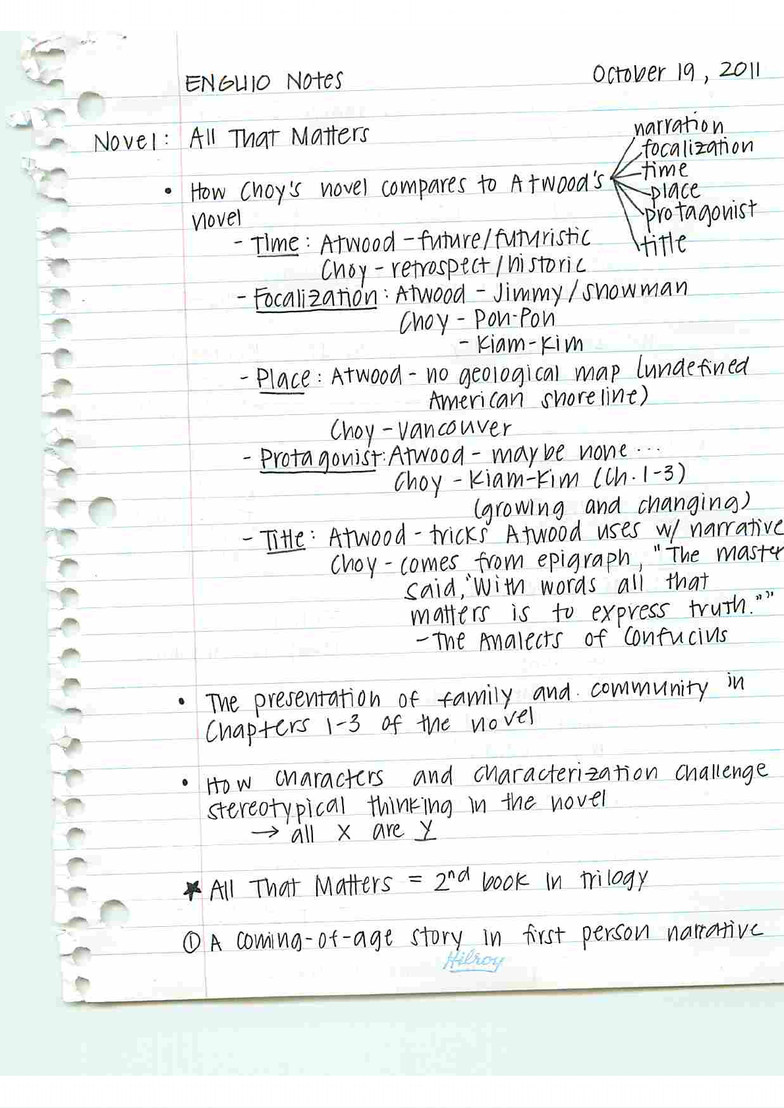 ENGL110 Notes
October 19, 2011
Novel: All That Matters
narration
focalization
time
place
protagonist
title
• How Choy's novel compares to Atwood's
novel
- Time: Atwood - future/futuristic
Choy - retrospect/historic
- Focalization: Atwood - Jimmy/Snowman
Choy - Poh-Poh
- Kiam-Kim
- Place: Atwood - no geological map (undefined
American shoreline)
Choy - Vancouver
- Protagonist: Atwood - maybe none ...
Choy - Kiam-Kim (Ch. 1-3)
(growing and changing)
- Title: Atwood - tricks Atwood uses w/ narrative
Choy - comes from epigraph, "The maste
said, 'With words all that
matters is to express truth.'"
- The Analects of Confucius
• The presentation of family and community in
Chapters 1-3 of the novel
• How characters and characterization challenge
stereotypical thinking in the novel
→ all X are Y
★ All That Matters = 2nd book in trilogy
① A coming-of-age story in first person narrative
Hilroy